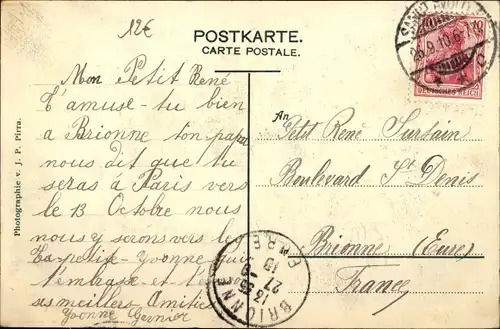 12€
POSTKARTE.
CARTE POSTALE.
Mon Petit René
T'amuse-tu bien
a Brionne ton papa
nous dit que tu
seras à Paris vers
le 13 Octobre nous
nous y serons vers le
Yvonne qui
t'embrasse et t'
ses meilleures Amitiés
Yvonne Garnier
An
Petit René Surtain
Boulevard St Denis
Brionne (Eure)
France
Photographie v. J. P. Pirra.
SANKT AVOLD
26.9.10.6-7
C
10
DEUTSCHES REICH
BRIONNE
EURE
27-9
10